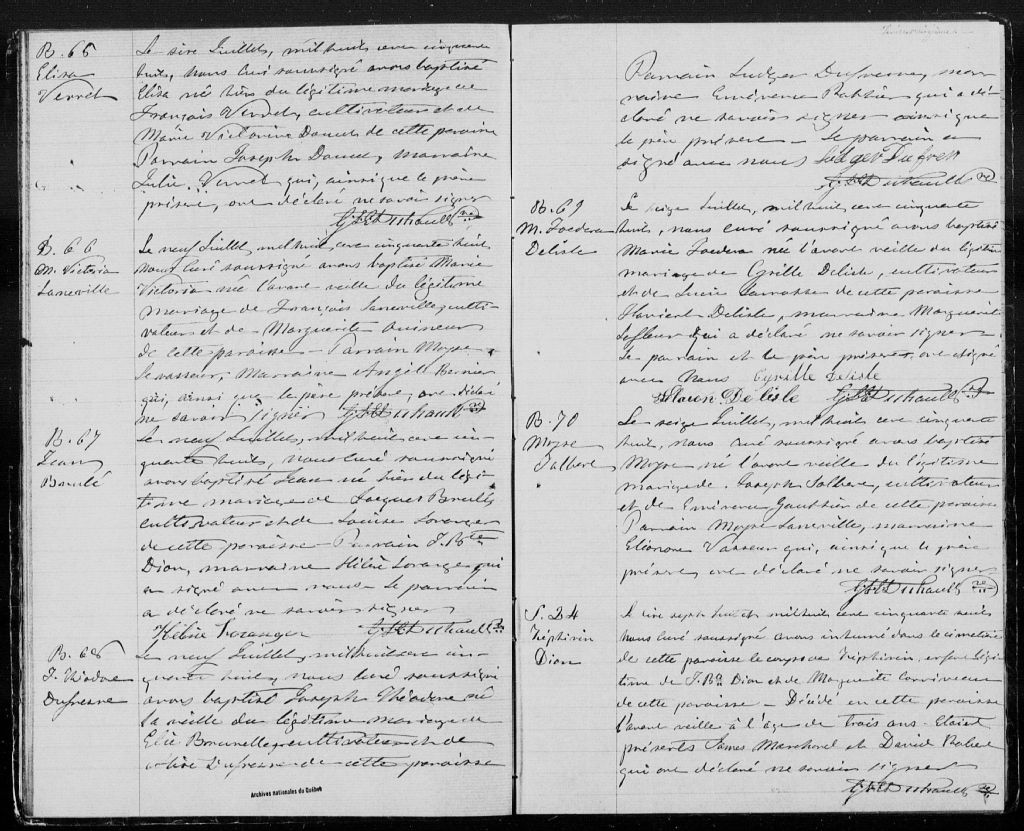 B. 65
Elisa
Verret
Le six Juillet, mil huit cent cinquante
huit, nous curé soussigné avons baptisé
Elisa né hier du légitime mariage de
François Verret, cultivateur et de
Marie Victorine Doucet de cette paroisse
Parrain Joseph Doucet, marraine
Julie Verret qui, ainsi que le père
présent, ont déclaré ne savoir signer
B. 66
M. Victoria
Laneville
Le neuf Juillet mil huit cent cinquante huit
nous curé soussigné avons baptisé Marie
Victoria née l'avant veille du légitime
mariage de François Laneville culti-
vateur et de Marguerite
de cette paroisse - Parrain Moyse
Levasseur, Marraine Angèle Bernier
qui, ainsi que le père présent, ont déclaré
ne savoir signer
B. 67
Jean
Brulé
Le neuf Juillet, mil huit cent cin-
quante huit, nous curé soussigné
avons baptisé Jean né hier du légi-
time mariage de Jacques Brulé
cultivateur et de Louise Loranger
de cette paroisse - Parrain J. Bte
Dion, marraine Hélène Loranger qui
a signé avec nous - Le parrain
a déclaré ne savoir signer
Loranger
B. 68
J. Théodore
Dufresne
Le neuf Juillet, mil huit cent cin-
quante huit, nous curé soussigné
avons baptisé Joseph Théodore né
la veille du légitime mariage de
Elie Brunelle cultivateur et de
Dufresne de cette paroisse
Archives nationales du Québec
Parrain Ludger Dufresne, mar-
raine Emérence qui a dé-
claré ne savoir signer ainsi que
le père présent - Le parrain a
signé avec nous
B. 69
M.
Delisle
Le seize Juillet, mil huit cent cinquante
huit, nous curé soussigné avons baptisé
Marie né l'avant veille du légitime
mariage de Cyrille Delisle, cultivateur
et de Lucie de cette paroisse
Delisle, marraine Marguerite
Lefleur qui a déclaré ne savoir signer -
Le parrain et le père présent, ont signé
avec nous Cyrille Delisle
Delisle
B. 70
Moyse
Le seize Juillet, mil huit cent cinquante
huit, nous curé soussigné avons baptisé
Moyse né l'avant veille du légitime
mariage de Joseph, cultivateur
et de Gauthier de cette paroisse
Parrain Moyse Laneville, marraine
Eléonore Vasseur qui, ainsi que le père
présent, ont déclaré ne savoir signer
S. 24
Zéphirin
Dion
Le dix sept huit mil huit cent cinquante huit
nous curé soussigné avons inhumé dans le cimetière
de cette paroisse le corps de Zéphirin, enfant légi-
time de J. Bte Dion et de Marguerite
de cette paroisse - Décédé en cette paroisse
l'avant veille à l'âge de trois ans - Etaient
présents James et David
qui ont déclaré ne savoir signer